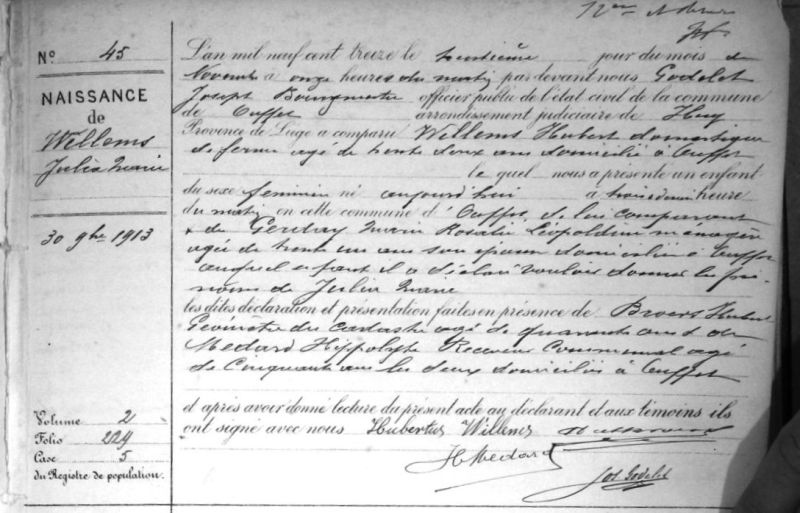 Nº 45
NAISSANCE
de
Willems
Julia Marie
30 9bre 1913
Volume 2
Folio 229
Case 5
du Registre de population.
L'an mil neuf cent treize le trentième jour du mois de
Novembre à onze heures du matin par devant nous Godelet
Joseph Bourgmestre officier public de l'état civil de la commune
de Ouffet arrondissement judiciaire de Huy
Province de Liège a comparu Willems Hubert domestique
de ferme agé de trente deux ans domicilié à Ouffet
le quel nous a présenté un enfant
du sexe feminin né aujourd'hui à trois heure
du matin en cette commune d'Ouffet, de lui comparant
& de Gerday Marie Rosalie Léopoldine ménagère
agée de trente un ans son épouse domiciliée à Ouffet
auquel enfant il a déclaré vouloir donner les pré-
noms de Julia Marie
les dites déclaration et présentation faites en présence de Broers Hubert
Géomètre du cadastre agé de quarante ans & de
Medard Hippolyte Receveur Communal agé
de Cinquante ans les deux domiciliés à Ouffet
et après avoir donné lecture du présent acte au déclarant et aux témoins ils
ont signé avec nous Hubertus Willems
H Medard
Jos Godelet